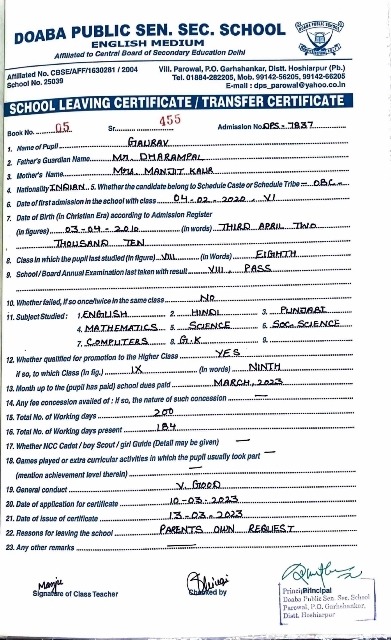 DOABA PUBLIC SEN. SEC. SCHOOL
ENGLISH MEDIUM
Affiliated to Central Board of Secondary Education Delhi
Affiliated No. CBSE/AFF/1630281 / 2004
School No. 25039
Vill. Parowal, P.O. Garhshankar, Distt. Hoshiarpur (Pb.)
Tel. 01884-282205, Mob. 99142-56205, 99142-66205
E-mail : dps_parowal@yahoo.co.in
SCHOOL LEAVING CERTIFICATE / TRANSFER CERTIFICATE
Book No. 05 Sr. 455 Admission No. DPS-7837
1. Name of Pupil GAURAV
2. Father's Guardian Name MR. DHARAMPAL
3. Mother's Name MRS. MANJIT KAUR
4. Nationality INDIAN 5. Whether the candidate belong to Schedule Caste or Schedule Tribe OBC
6. Date of first admission in the school with class 04-02-2020, VI
7. Date of Birth (in Christian Era) according to Admission Register
(in figures) 03-04-2010 (in words) THIRD APRIL TWO
THOUSAND TEN
8. Class in which the pupil studied (In figure) VIII (in Words) EIGHTH
9. School / Board Annual Examination last taken with result VIII, PASS
10. Whether failed, if so once/twice in the same class NO
11. Subject Studied : 1. ENGLISH 2. HINDI 3. PUNJABI
4. MATHEMATICS 5. SCIENCE 6. SOC. SCIENCE
7. COMPUTERS 8. G.K 9.
12. Whether qualified for promotion to the Higher Class YES
if so, to which Class (in fig.) IX (In words) NINTH
13. Month up to the (pupil has paid) school dues paid MARCH, 2023
14. Any fee concession availed of : if so, the nature of such concession —
15. Total No. of Working days 200
16. Total No. of Working days present 184
17. Whether NCC Cadet / boy Scout / girl Guide (Detail may be given) —
18. Games played or extra curricular activities in which the pupil usually took part —
(mention achievement level therein) —
19. General conduct V. GOOD
20. Date of application for certificate 10-03-2023
21. Date of issue of certificate 13-03-2023
22. Reasons for leaving the school PARENTS OWN REQUEST
23. Any other remarks —
Signature of Class Teacher Checked by Principal
Principal
Doaba Public Sen. Sec. School
Parowal, P.O. Garhshankar,
Distt. Hoshiarpur